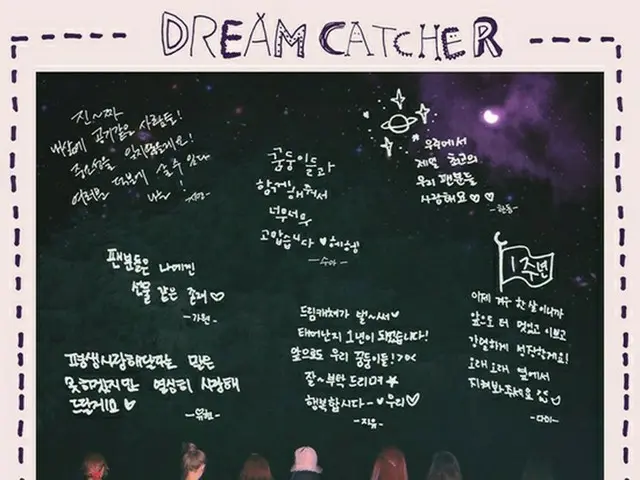 DREAM CATCHER
진~짜
내삶에 공기같은 사람들!
주신
여러분 덕분에 숨 쉬
꿍둥이들과
함께해줘서
너무너무
고맙습니다 ♥
-수아-
우주에서
제일 최고의
우리 팬분들
사랑해요♡♡
-한동-
팬분들은 나에겐
선물 같은 존재♡
-가현-
평생사랑해달라는 말은
못하겠지만 열심히 사랑해
드릴게요♡
-유현-
드림캐쳐가 벌~써♡
태어난지 1년이 되었습니다!
앞으로도 우리 꿍둥이들! >_<
잘~부탁 드리며★
행복합시다-♥우리♡
-지유-
1주년
이제 겨우 한 살이니까
앞으로 더 멋있고 이쁘고
강렬하게 성장할게요!
오래오래 옆에서
지켜봐주세요
-다미-